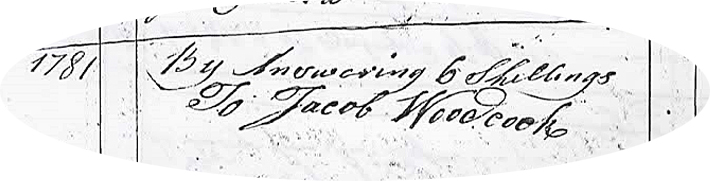 1781 By Answering 6 Shillings
To Jacob Woodcock